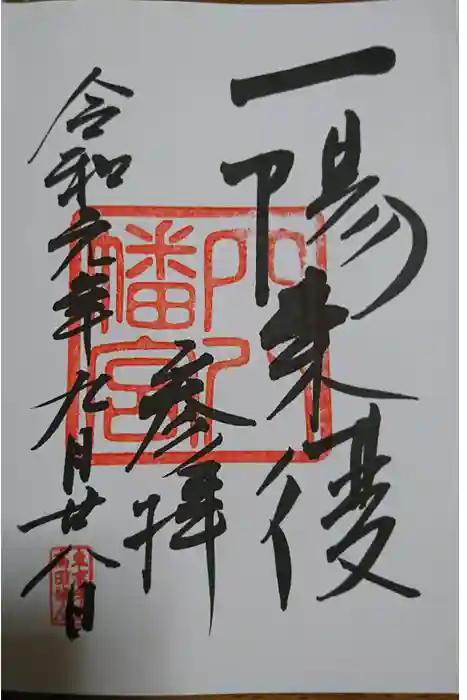 一陽来復
参拝
令和元年九月廿八日
穴八
幡宮